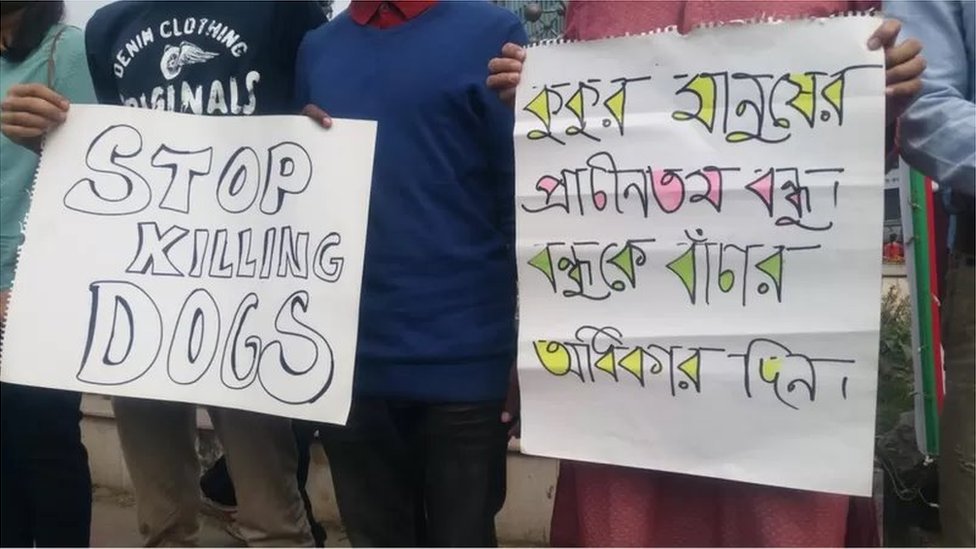 DENIM CLOTHING
ORIGINALS
STOP
KILLING
DOGS
কুকুর মানুষের
প্রাচীনতম বন্ধু।
বন্ধুকে বাঁচার
অধিকার দিন।